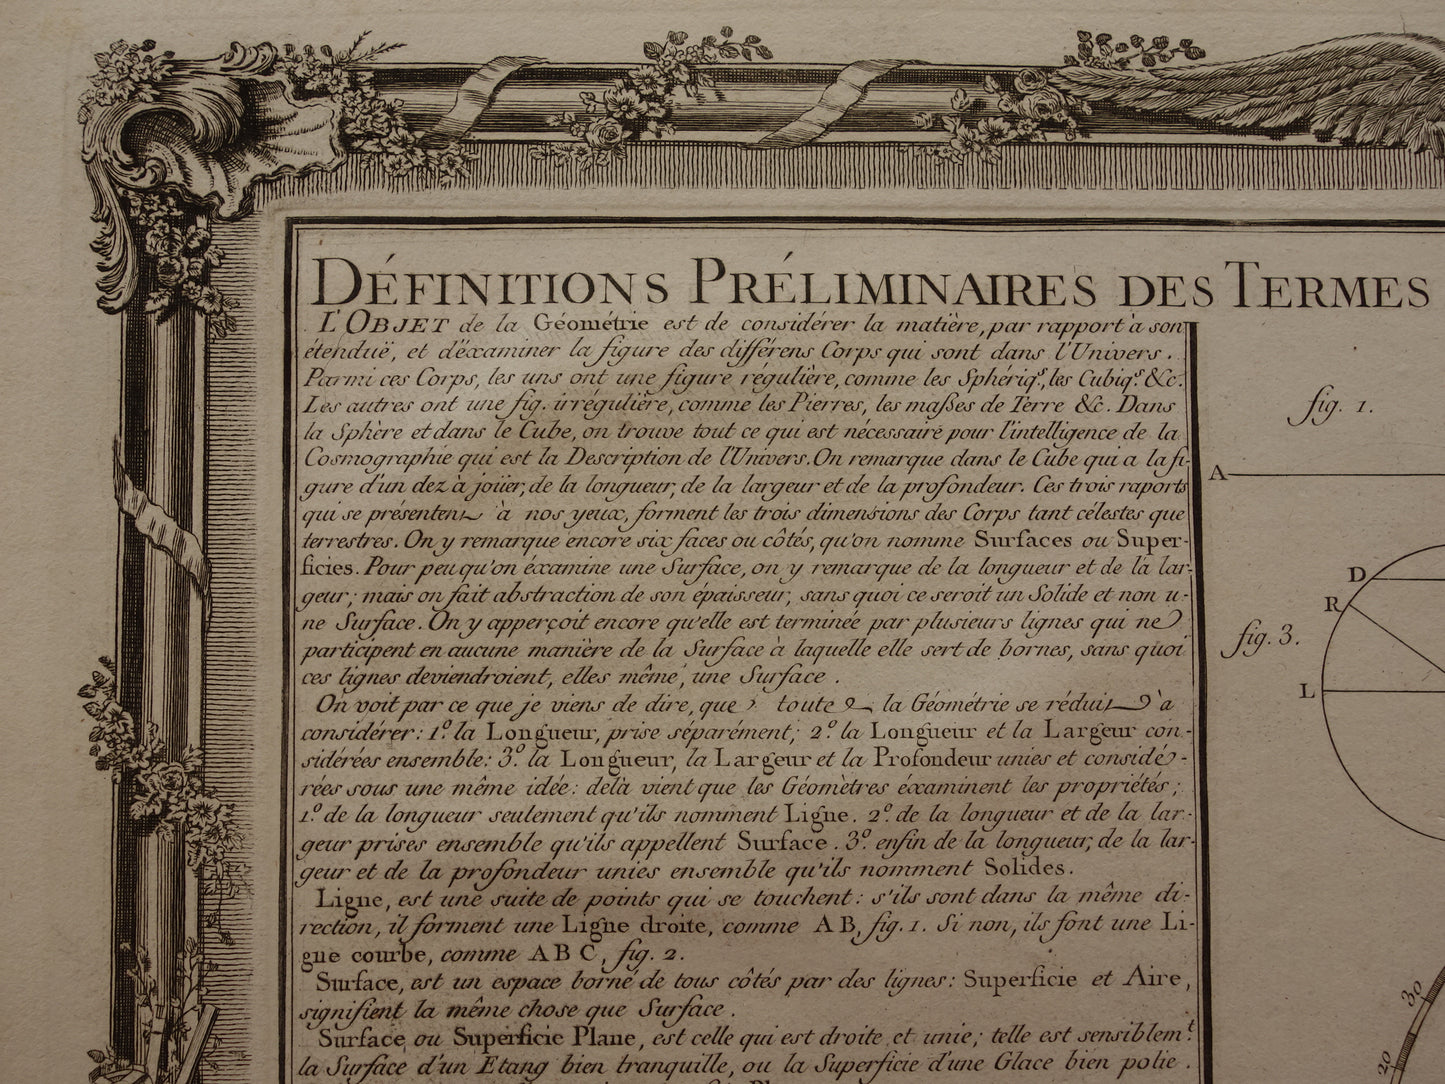 DÉFINITIONS PRÉLIMINAIRES DES TERMES
L'OBJET de la Géométrie est de considérer la matière, par rapport à son
étenduë, et d'éxaminer la figure des différens Corps qui sont dans l'Univers.
Parmi ces Corps, les uns ont une figure régulière, comme les Sphériq.s, les Cubiq.s &c.
Les autres ont une fig. irrégulière, comme les Pierres, les maßes de Terre &c. Dans
la Sphère et dans le Cube, on trouve tout ce qui est nécessaire pour l'intelligence de la
Cosmographie qui est la Description de l'Univers. On remarque dans le Cube qui a la fi-
gure d'un dez à joüer, de la longueur, de la largeur et de la profondeur. Ces trois raports
qui se présentent à nos yeux, forment les trois dimensions des Corps tant célestes que
terrestres. On y remarque encore six faces ou côtés, qu'on nomme Surfaces ou Super-
ficies. Pour peu qu'on éxamine une Surface, on y remarque de la longueur et de la lar-
geur; mais on fait abstraction de son épaisseur, sans quoi ce seroit un Solide et non u-
ne Surface. On y apperçoit encore qu'elle est terminée par plusieurs lignes qui ne
participent en aucune manière de la Surface à laquelle elle sert de bornes, sans quoi
ces lignes deviendroient, elles même, une Surface.
On voit par ce que je viens de dire, que toute la Géométrie se réduit à
considérer: 1.º la Longueur, prise séparément; 2.º la Longueur et la Largeur con-
sidérées ensemble: 3.º la Longueur, la Largeur et la Profondeur unies et considé-
rées sous une même idée: delà vient que les Géomètres éxaminent les propriétés;
1.º de la longueur seulement qu'ils nomment Ligne. 2.º de la longueur et de la lar-
geur prises ensemble qu'ils appellent Surface. 3.º enfin de la longueur, de la lar-
geur et de la profondeur unies ensemble qu'ils nomment Solides.
Ligne, est une suite de points qui se touchent: s'ils sont dans la même di-
rection, il forment une Ligne droite, comme AB, fig. 1. Si non, ils font une Li-
gne courbe, comme ABC, fig. 2.
Surface, est un espace borné de tous côtés par des lignes: Superficie et Aire,
signifient la même chose que Surface.
Surface ou Superficie Plane, est celle qui est droite et unie; telle est sensiblem.t
la Surface d'un Etang bien tranquille, ou la Superficie d'une Glace bien polie.
fig. 1.
A
D
R
fig. 3.
L
30
20